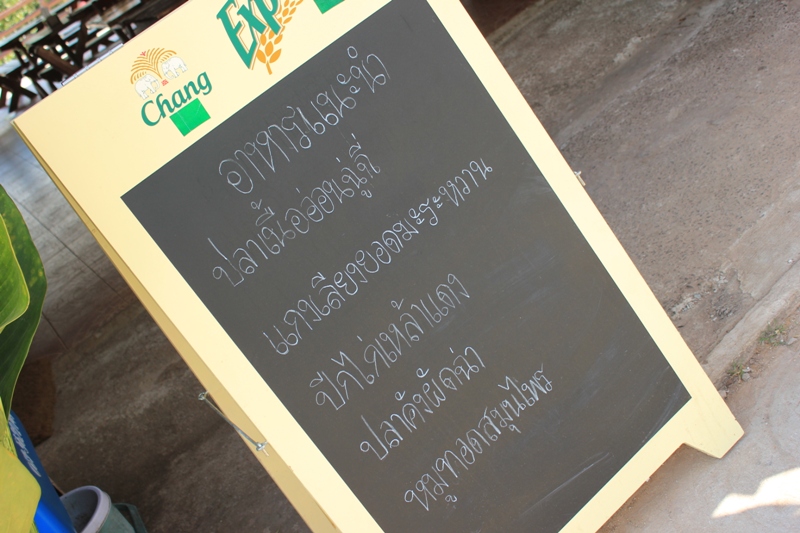 Chang
Exp
อาหารแนะนำ
ปลาเนื้ออ่อนฉู่ฉี่
แกงเลียงยอดมะระหวาน
ปีกไก่เหล้าแดง
ปลาคังผัดฉ่า
หมูทอดสมุนไพร